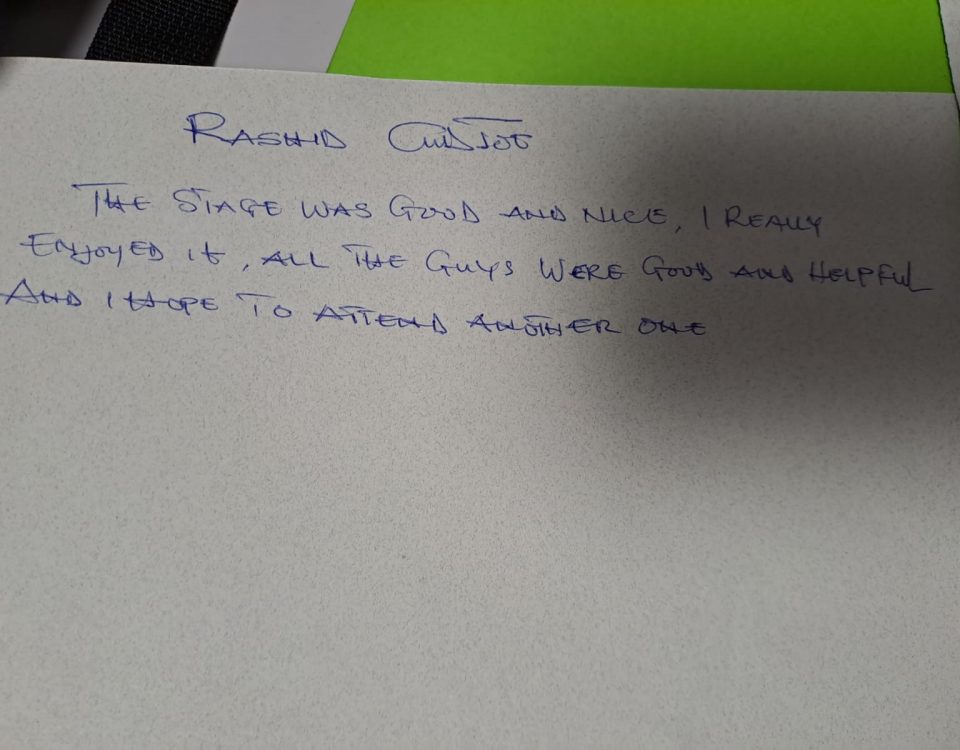 RASHID CUDJOE
THE STAGE WAS GOOD AND NICE, I REALLY
ENJOYED IT, ALL THE GUYS WERE GOOD AND HELPFUL
AND I HOPE TO ATTEND ANOTHER ONE